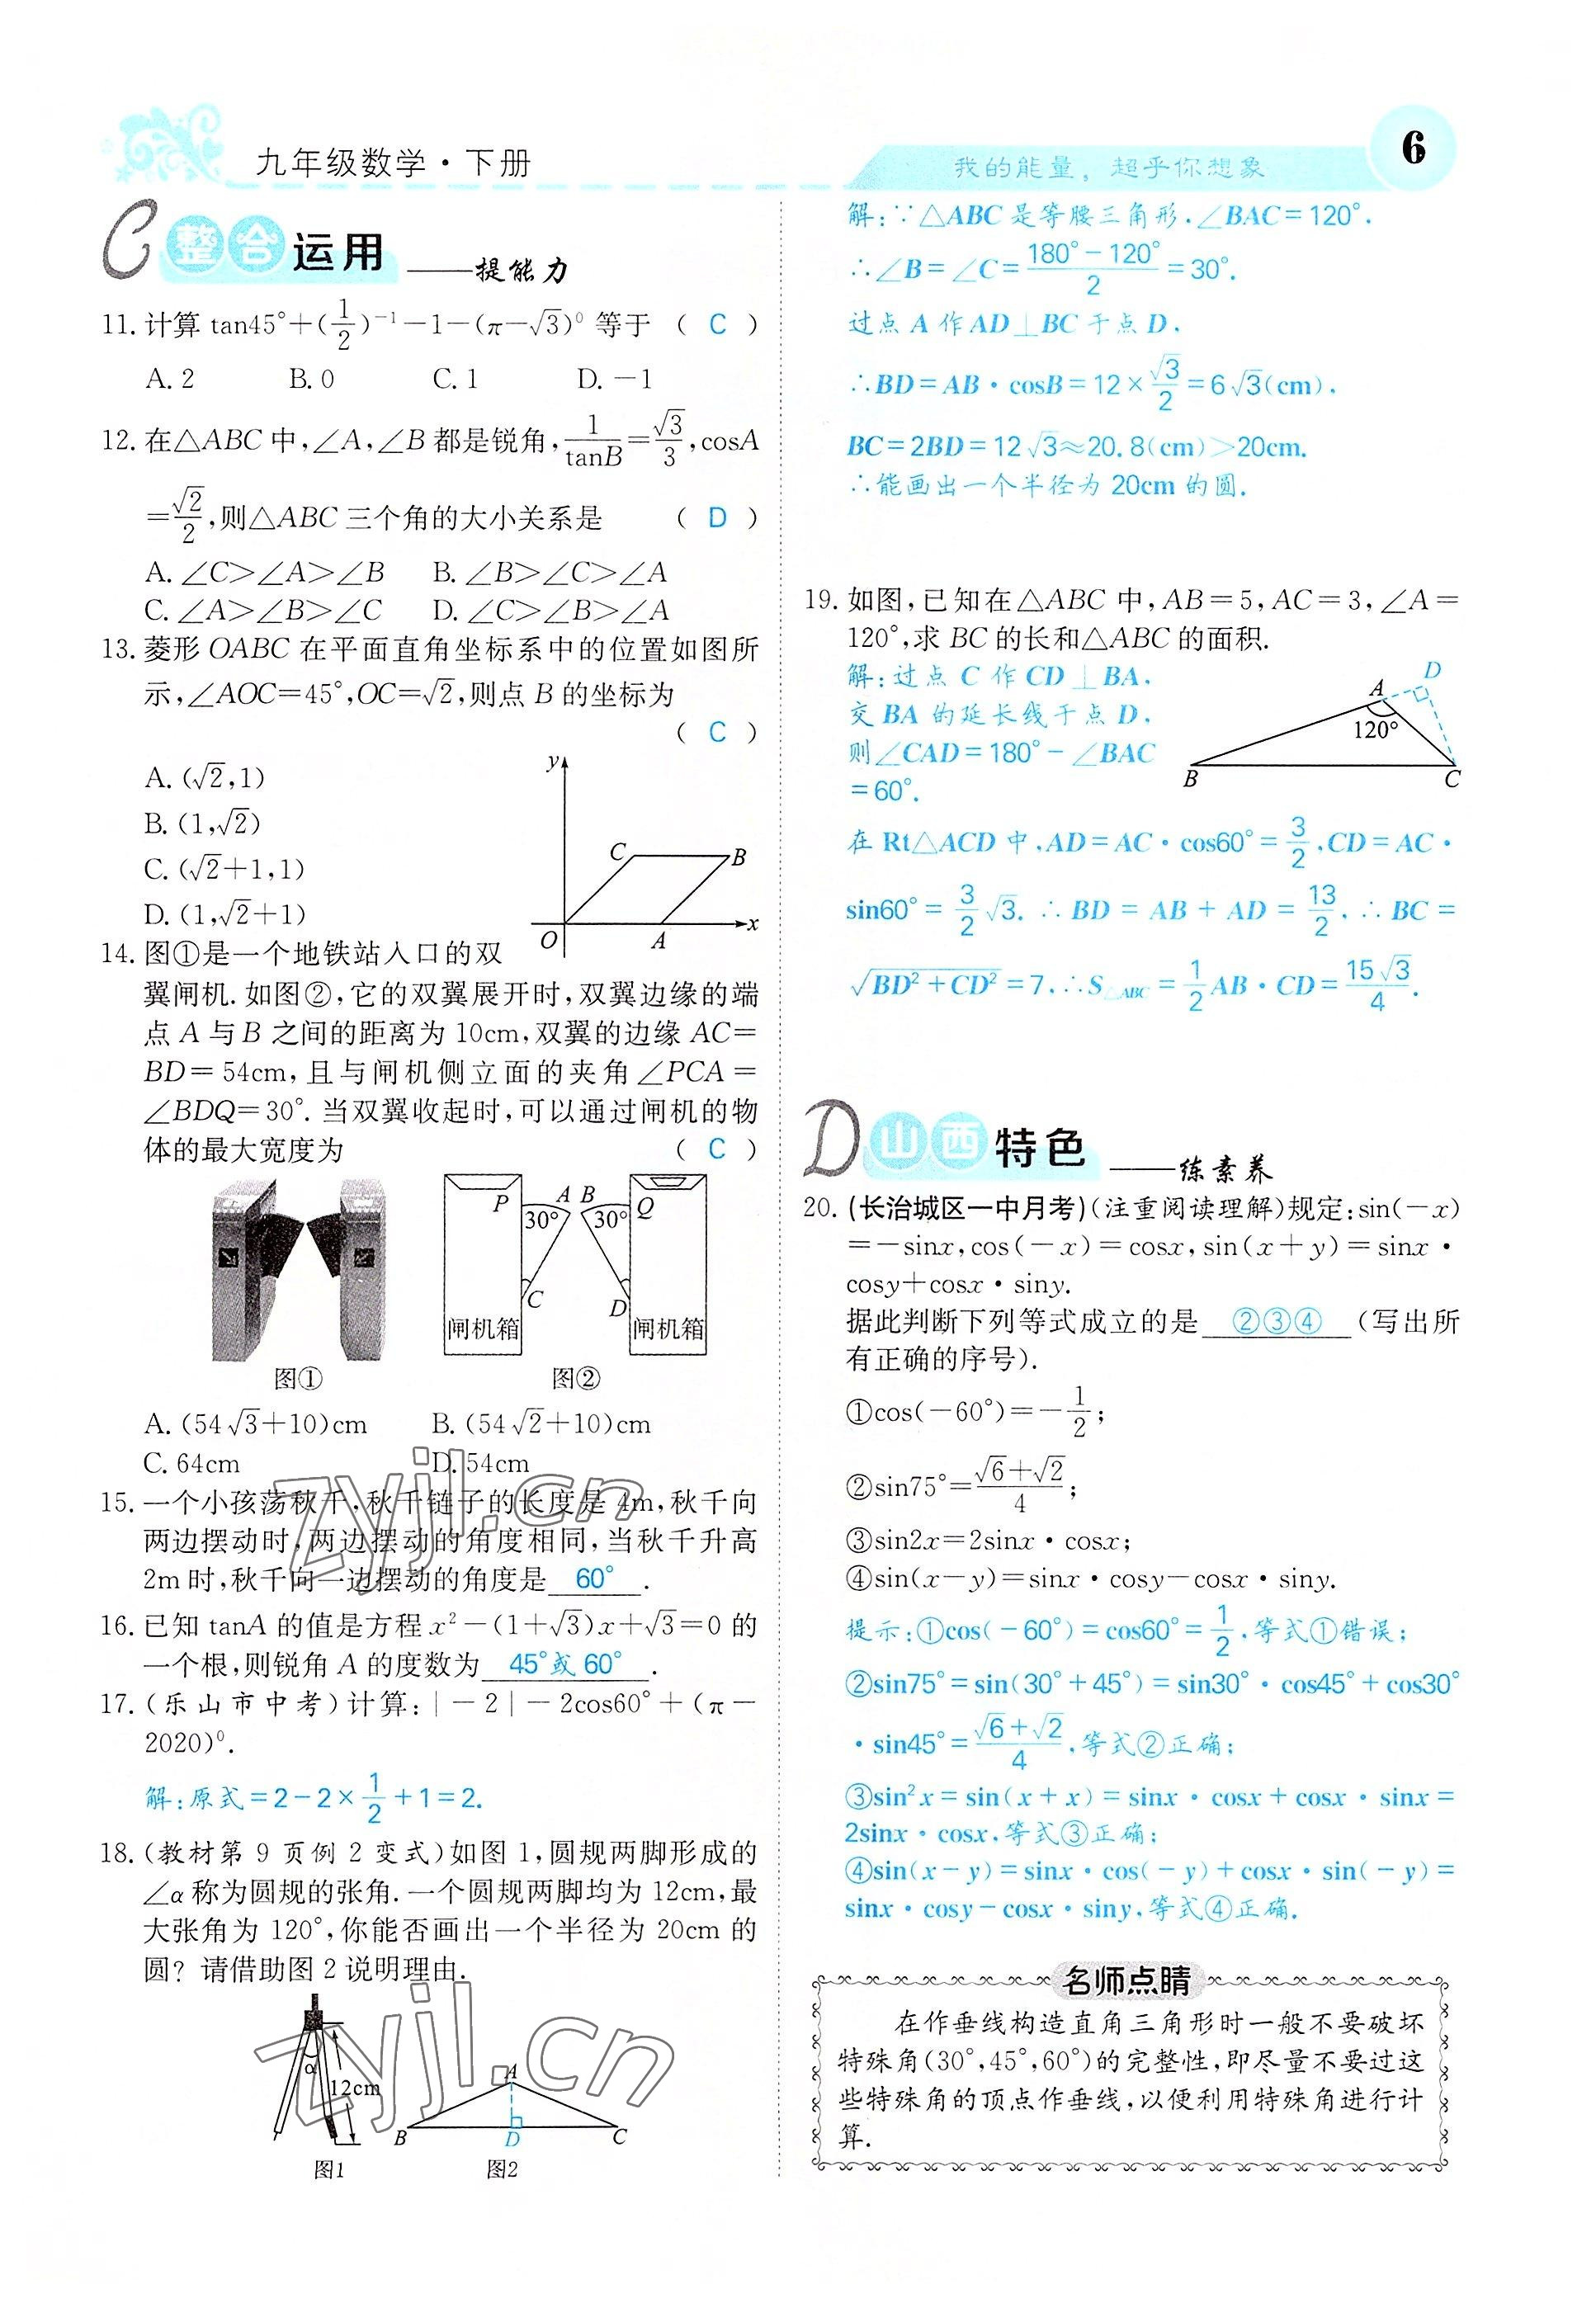 九年级数学·下册
我的能量，超乎你想象
6
C 整合运用 ——提能力
11. 计算 tan45°+(1/2)⁻¹-1-(π-√3)⁰ 等于 ( C )
A. 2 B. 0 C. 1 D. -1
12. 在△ABC 中,∠A,∠B 都是锐角,1/tanB=√3/3,cosA
=√2/2,则△ABC 三个角的大小关系是 ( D )
A. ∠C>∠A>∠B B. ∠B>∠C>∠A
C. ∠A>∠B>∠C D. ∠C>∠B>∠A
13. 菱形 OABC 在平面直角坐标系中的位置如图所
示,∠AOC=45°,OC=√2,则点 B 的坐标为
( C )
A. (√2,1)
B. (1,√2)
C. (√2+1,1)
D. (1,√2+1)
y
C
B
O
A
x
14. 图①是一个地铁站入口的双
翼闸机. 如图②,它的双翼展开时,双翼边缘的端
点 A 与 B 之间的距离为 10cm,双翼的边缘 AC=
BD=54cm,且与闸机侧立面的夹角∠PCA=
∠BDQ=30°. 当双翼收起时,可以通过闸机的物
体的最大宽度为 ( C )
P A B Q
30° 30°
C D
闸机箱 闸机箱
图① 图②
A. (54√3+10)cm B. (54√2+10)cm
C. 64cm D. 54cm
15. 一个小孩荡秋千,秋千链子的长度是 4m,秋千向
两边摆动时,两边摆动的角度相同,当秋千升高
2m 时,秋千向一边摆动的角度是 60° .
16. 已知 tanA 的值是方程 x²-(1+√3)x+√3=0 的
一个根,则锐角 A 的度数为 45°或 60° .
17. (乐山市中考)计算:|-2|-2cos60°+(π-
2020)⁰.
解:原式=2-2×1/2+1=2.
18. (教材第 9 页例 2 变式)如图 1,圆规两脚形成的
∠α称为圆规的张角. 一个圆规两脚均为 12cm,最
大张角为 120°,你能否画出一个半径为 20cm 的
圆? 请借助图 2 说明理由.
α
12cm
A
B
D
C
图1 图2
zyjl.cn
zyjl.cn
解:∵△ABC 是等腰三角形,∠BAC=120°,
∴∠B=∠C=(180°-120°)/2=30°.
过点 A 作 AD⊥BC 于点 D,
∴BD=AB·cosB=12×√3/2=6√3(cm),
BC=2BD=12√3≈20.8(cm)>20cm.
∴能画出一个半径为 20cm 的圆.
19. 如图,已知在△ABC 中,AB=5,AC=3,∠A=
120°,求 BC 的长和△ABC 的面积.
解:过点 C 作 CD⊥BA,
交 BA 的延长线于点 D,
则∠CAD=180°-∠BAC
=60°.
A
D
120°
B
C
在 Rt△ACD 中,AD=AC·cos60°=3/2,CD=AC·
sin60°=3/2√3. ∴BD=AB+AD=13/2, ∴BC=
√(BD²+CD²)=7,∴S△ABC=1/2AB·CD=15√3/4.
D 山西特色 ——练素养
20. (长治城区一中月考)(注重阅读理解)规定:sin(-x)
=-sinx,cos(-x)=cosx,sin(x+y)=sinx·
cosy+cosx·siny.
据此判断下列等式成立的是 ②③④ (写出所
有正确的序号).
①cos(-60°)=-1/2;
②sin75°=(√6+√2)/4;
③sin2x=2sinx·cosx;
④sin(x-y)=sinx·cosy-cosx·siny.
提示:①cos(-60°)=cos60°=1/2,等式①错误;
②sin75°=sin(30°+45°)=sin30°·cos45°+cos30°
·sin45°=(√6+√2)/4,等式②正确;
③sin²x=sin(x+x)=sinx·cosx+cosx·sinx=
2sinx·cosx,等式③正确;
④sin(x-y)=sinx·cos(-y)+cosx·sin(-y)=
sinx·cosy-cosx·siny,等式④正确.
名师点睛
在作垂线构造直角三角形时一般不要破坏
特殊角(30°,45°,60°)的完整性,即尽量不要过这
些特殊角的顶点作垂线,以便利用特殊角进行计
算.